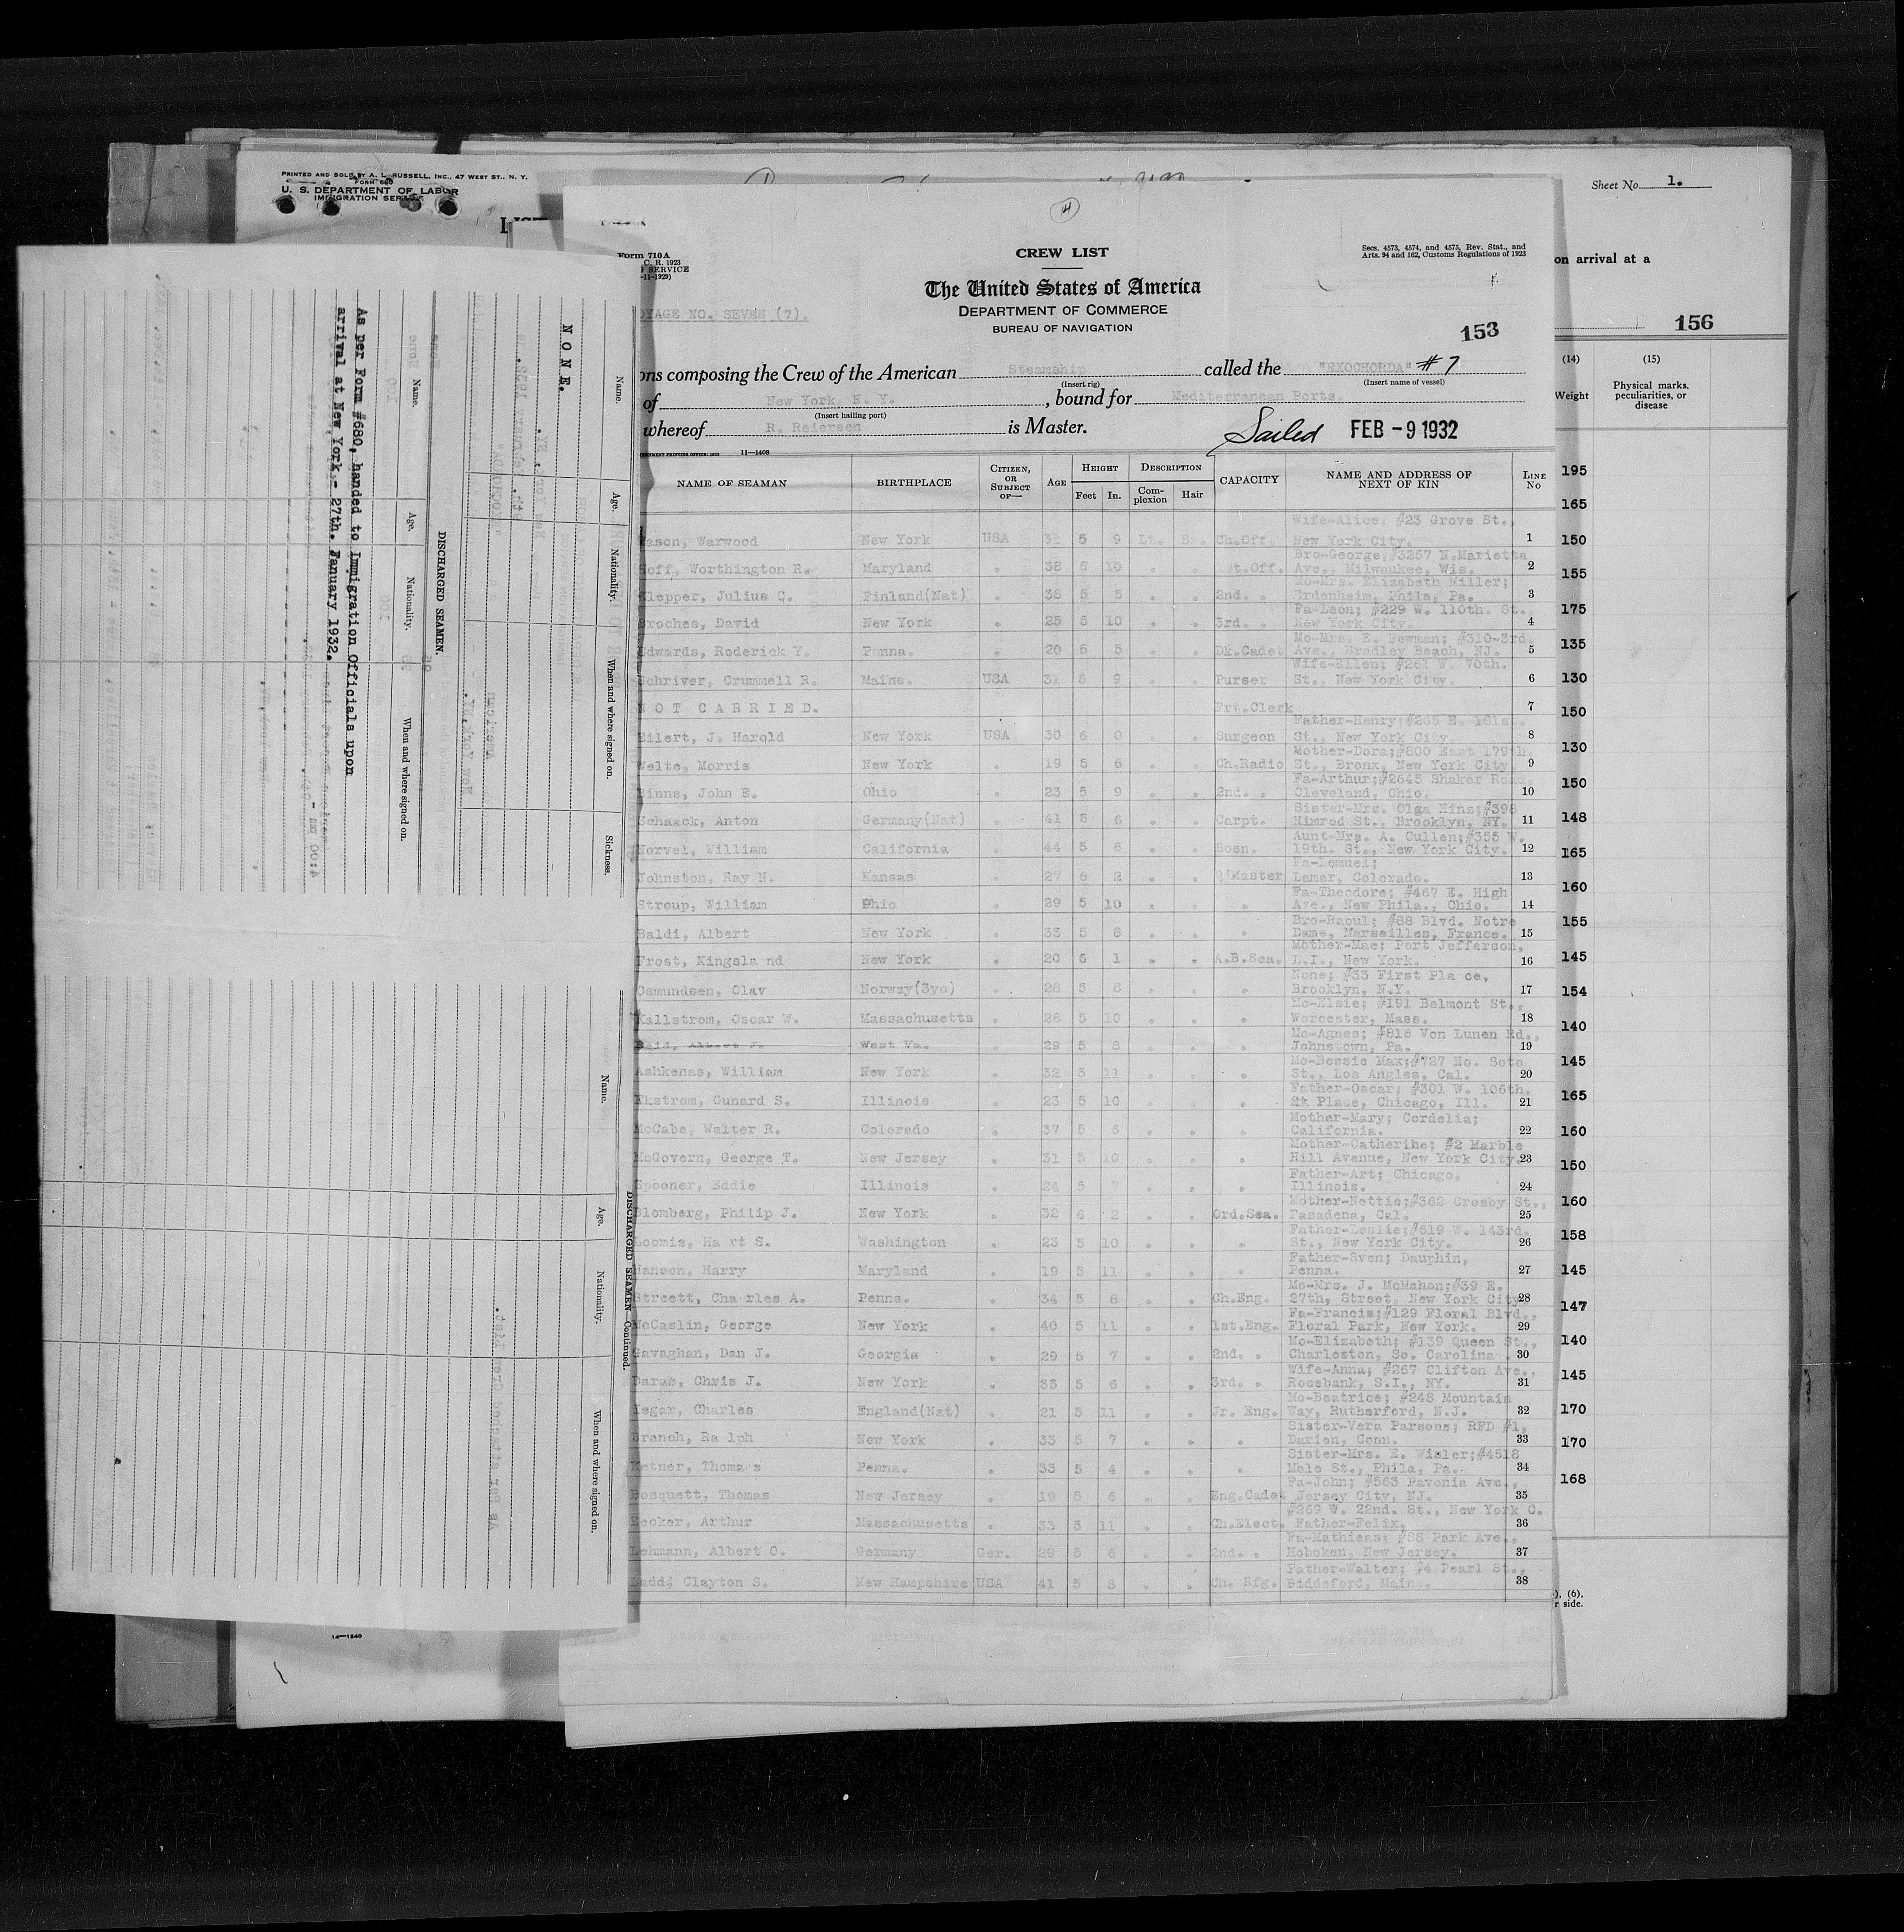 PRINTED AND SOLD BY A. L. RUSSELL, INC., 47 WEST ST., N. Y.
FORM 680
U. S. DEPARTMENT OF LABOR
IMMIGRATION SERVICE
Sheet No. 1.
on arrival at a
156
(14) (15)
Weight Physical marks, peculiarities, or disease
195
165
150
155
175
135
130
150
130
150
148
165
160
155
145
154
140
145
165
160
150
160
158
145
147
140
145
170
170
168
), (6),
r side.
14—1240
Form 710A
C. R. 1923
SERVICE
-11-1929)
CREW LIST
Secs. 4573, 4574, and 4575, Rev. Stat., and
Arts. 94 and 162, Customs Regulations of 1923
The United States of America
DEPARTMENT OF COMMERCE
BUREAU OF NAVIGATION
OYAGE NO. SEVEN (7).
153
ons composing the Crew of the American Steamship called the "EXOCHORDA" #7
(Insert rig) (Insert name of vessel)
of New York, N. Y., bound for Mediterranean Ports.
(Insert hailing port)
whereof R. Reiersen is Master.
Sailed FEB -9 1932
11—1408
NAME OF SEAMAN BIRTHPLACE CITIZEN, OR SUBJECT OF— AGE HEIGHT Feet In. DESCRIPTION Complexion Hair CAPACITY NAME AND ADDRESS OF NEXT OF KIN LINE NO
ason, Warwood New York USA 31 5 9 Lt. Ch.Off. Wife-Alice. #23 Grove St., New York City. 1
off, Worthington R. Maryland " 38 5 10 " " 1st.Off. Bro-George;#3257 N.Marietta Ave., Milwaukee, Wis. 2
Klepper, Julius C. Finland(Nat) " 36 5 5 " " 2nd. " Mo-Mrs. Elizabeth Miller; Erdenheim, Phila, Pa. 3
Broches, David New York " 25 5 10 " " 3rd. " Fa-Leon; #229 W. 110th. St., New York City. 4
Edwards, Roderick Y. Penna. " 20 6 5 " " Dk.Cadet Mo-Mrs. E. Newman; #310-3rd. Ave., Bradley Beach, NJ. 5
Schriver, Crummell R. Maine. USA 31 5 9 " " Purser Wife-Ellen; #261 W. 70th. St., New York City. 6
NOT CARRIED. Frt.Clerk 7
Eilert, J. Harold New York USA 30 6 0 " " Surgeon Father-Henry;#265 E. 181st. St., New York City. 8
Welte, Morris New York " 19 5 6 " " Ch.Radio Mother-Dora;#800 East 179th. St., Bronx, New York City 9
Binns, John E. Ohio " 23 5 9 " " 2nd. " Fa-Arthur;#2645 Shaker Road, Cleveland, Ohio. 10
Schaack, Anton Germany(Nat) " 41 5 6 " " Carpt. Sister-Mrs. Olga Hinz;#398 Nimrod St., Brooklyn, NY. 11
Norvel, William California " 44 5 6 " " Bosn. Aunt-Mrs. A. Cullen;#355 W. 19th. St., New York City. 12
Johnston, Ray N. Kansas " 27 6 2 " " Q'Master Fa-Lemuel; Lamar, Colorado. 13
Stroup, William Ohio " 29 5 10 " " " Fa-Theodore; #467 E. High Ave., New Phila., Ohio. 14
Baldi, Albert New York " 33 5 8 " " " Bro-Raoul; #88 Blvd. Notre Dame, Marseilles, France. 15
Frost, Kingsla nd New York " 20 6 1 " " A.B.Sea. Mother-Mae; Port Jefferson, L.I., New York. 16
Osmundsen, Olav Norway(3yo) " 28 5 8 " " " None; #33 First Pla ce, Brooklyn, N.Y. 17
Kallstrom, Oscar W. Massachusetts " 26 5 10 " " " Mo-Elsie; #191 Belmont St., Worcester, Mass. 18
Reid, Albert J. West Va. " 29 5 8 " " " Mo-Agnes; #816 Von Lunen Rd., Johnstown, Pa. 19
Ashkenas, William New York " 32 5 11 " " " Mo-Bessie Max;#727 No. Soto St., Los Angles, Cal. 20
Ekstrom, Gunard S. Illinois " 23 5 10 " " " Father-Oscar; #301 W. 106th. Place, Chicago, Ill. 21
McCabe, Walter R. Colorado " 37 5 6 " " " Mother-Mary; Cordelia; California. 22
McGovern, George T. New Jersey " 31 5 10 " " " Mother-Catherine; #2 Marble Hill Avenue, New York City 23
Spooner, Eddie Illinois " 24 5 7 " " " Father-Art; Chicago, Illinois. 24
Blomberg, Philip J. New York " 32 6 2 " " Ord.Sea. Mother-Nettie;#362 Crosby St., Pasadena, Cal. 25
Loomis, Ha rt S. Washington " 23 5 10 " " " Father-Leslie;#619 W. 143rd. St., New York City. 26
Hanson, Harry Maryland " 19 5 11 " " " Father-Sven; Dauphin, Penna. 27
Streett, Cha rles A. Penna. " 34 5 8 " " Ch.Eng. Mo-Mrs. J. McMahon;#39 E. 27th, Street, New York City 28
McCaslin, George New York " 40 5 11 " " 1st.Eng. Fa-Francis;#129 Floral Blvd., Floral Park, New York. 29
Gavaghan, Dan J. Georgia " 29 5 7 " " 2nd. " Mo-Elizabeth; #139 Queen St., Charleston, So. Carolina 30
Daras, Chris J. New York " 35 5 6 " " 3rd. " Wife-Anna; #267 Clifton Ave., Rosebank, S.I., NY. 31
Yegar, Charles England(Nat) " 21 5 11 " " Jr. Eng. Mo-Beatrice; #248 Mountain Way, Rutherford, N.J. 32
Branch, Ra lph New York " 33 5 7 " " " Sister-Vera Parsons; RFD #1, Darien, Conn. 33
Ketner, Thomas Penna. " 33 5 4 " " " Sister-Mrs. E. Wisler;#4518 Mble St., Phila, Pa. 34
Bosquett, Thomas New Jersey " 19 5 6 " " Eng.Cadet Fa-John; #563 Pavonia Ave., Jersey City, NJ. 35
Becker, Arthur Massachusetts " 33 5 11 " " Ch.Elect. #269 W. 22nd. St., New York C. Father-Felix. 36
Lehmann, Albert O. Germany Ger. 29 5 6 " " 2nd. " Fa-Mathieas; #88 Park Ave., Hoboken, New Jersey. 37
Ladd, Clayton S. New Hampshire USA 41 5 8 " " Ch. Rfg. Father-Walter; #4 Pearl St., Biddeford, Maine. 38
Name. Age. Nationality. When and where signed on. Sickness.
NONE.
DISCHARGED SEAMEN.
Name. Age. Nationality. When and where signed on.
As per Form #680, handed to Immigration Officials upon
arrival at New York,- 27th. January 1932.
DISCHARGED SEAMEN—Continued.
Name. Age. Nationality. When and where signed on.